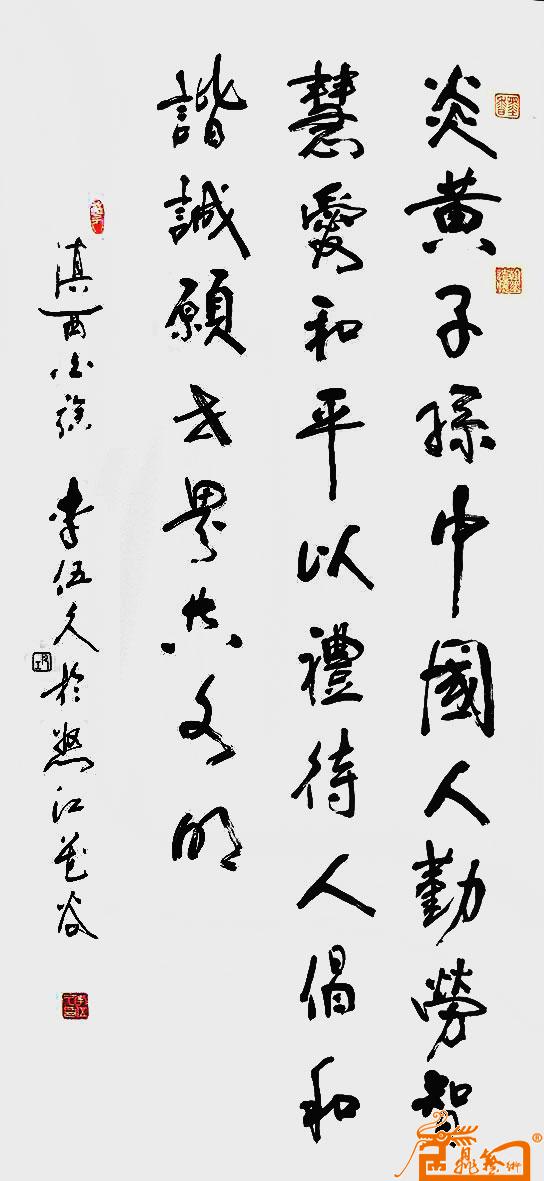 炎黄子孫中國人勤勞智
慧愛和平以禮待人倡和
諧誠願世界共文明
滇西白族 李伍久於怒江花谷